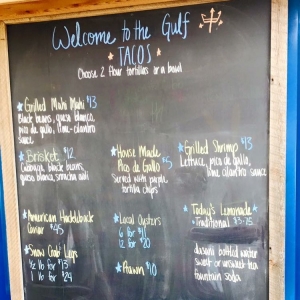 Welcome to the Gulf
TACOS
Choose 2 flour tortillas or a bowl
Grilled Mahi Mahi $13
Black beans, queso blanco,
pico de gallo, lime-cilantro
sauce
Brisket $12
Cabbage, black beans,
queso blanco, sriracha aioli
American Hackleback
Caviar $95
Snow Crab Legs
1/2 lb for $13
1 lb for $24
House Made
Pico de Gallo $5
Served with purple
tortilla chips
Local Oysters
6 for $11
12 for $20
$10
Grilled Shrimp $13
Lettuce, pico de gallo,
lime cilantro sauce
Today's Lemonade
Traditional $3.75
dasani bottled water
sweet or unsweet tea
fountain soda